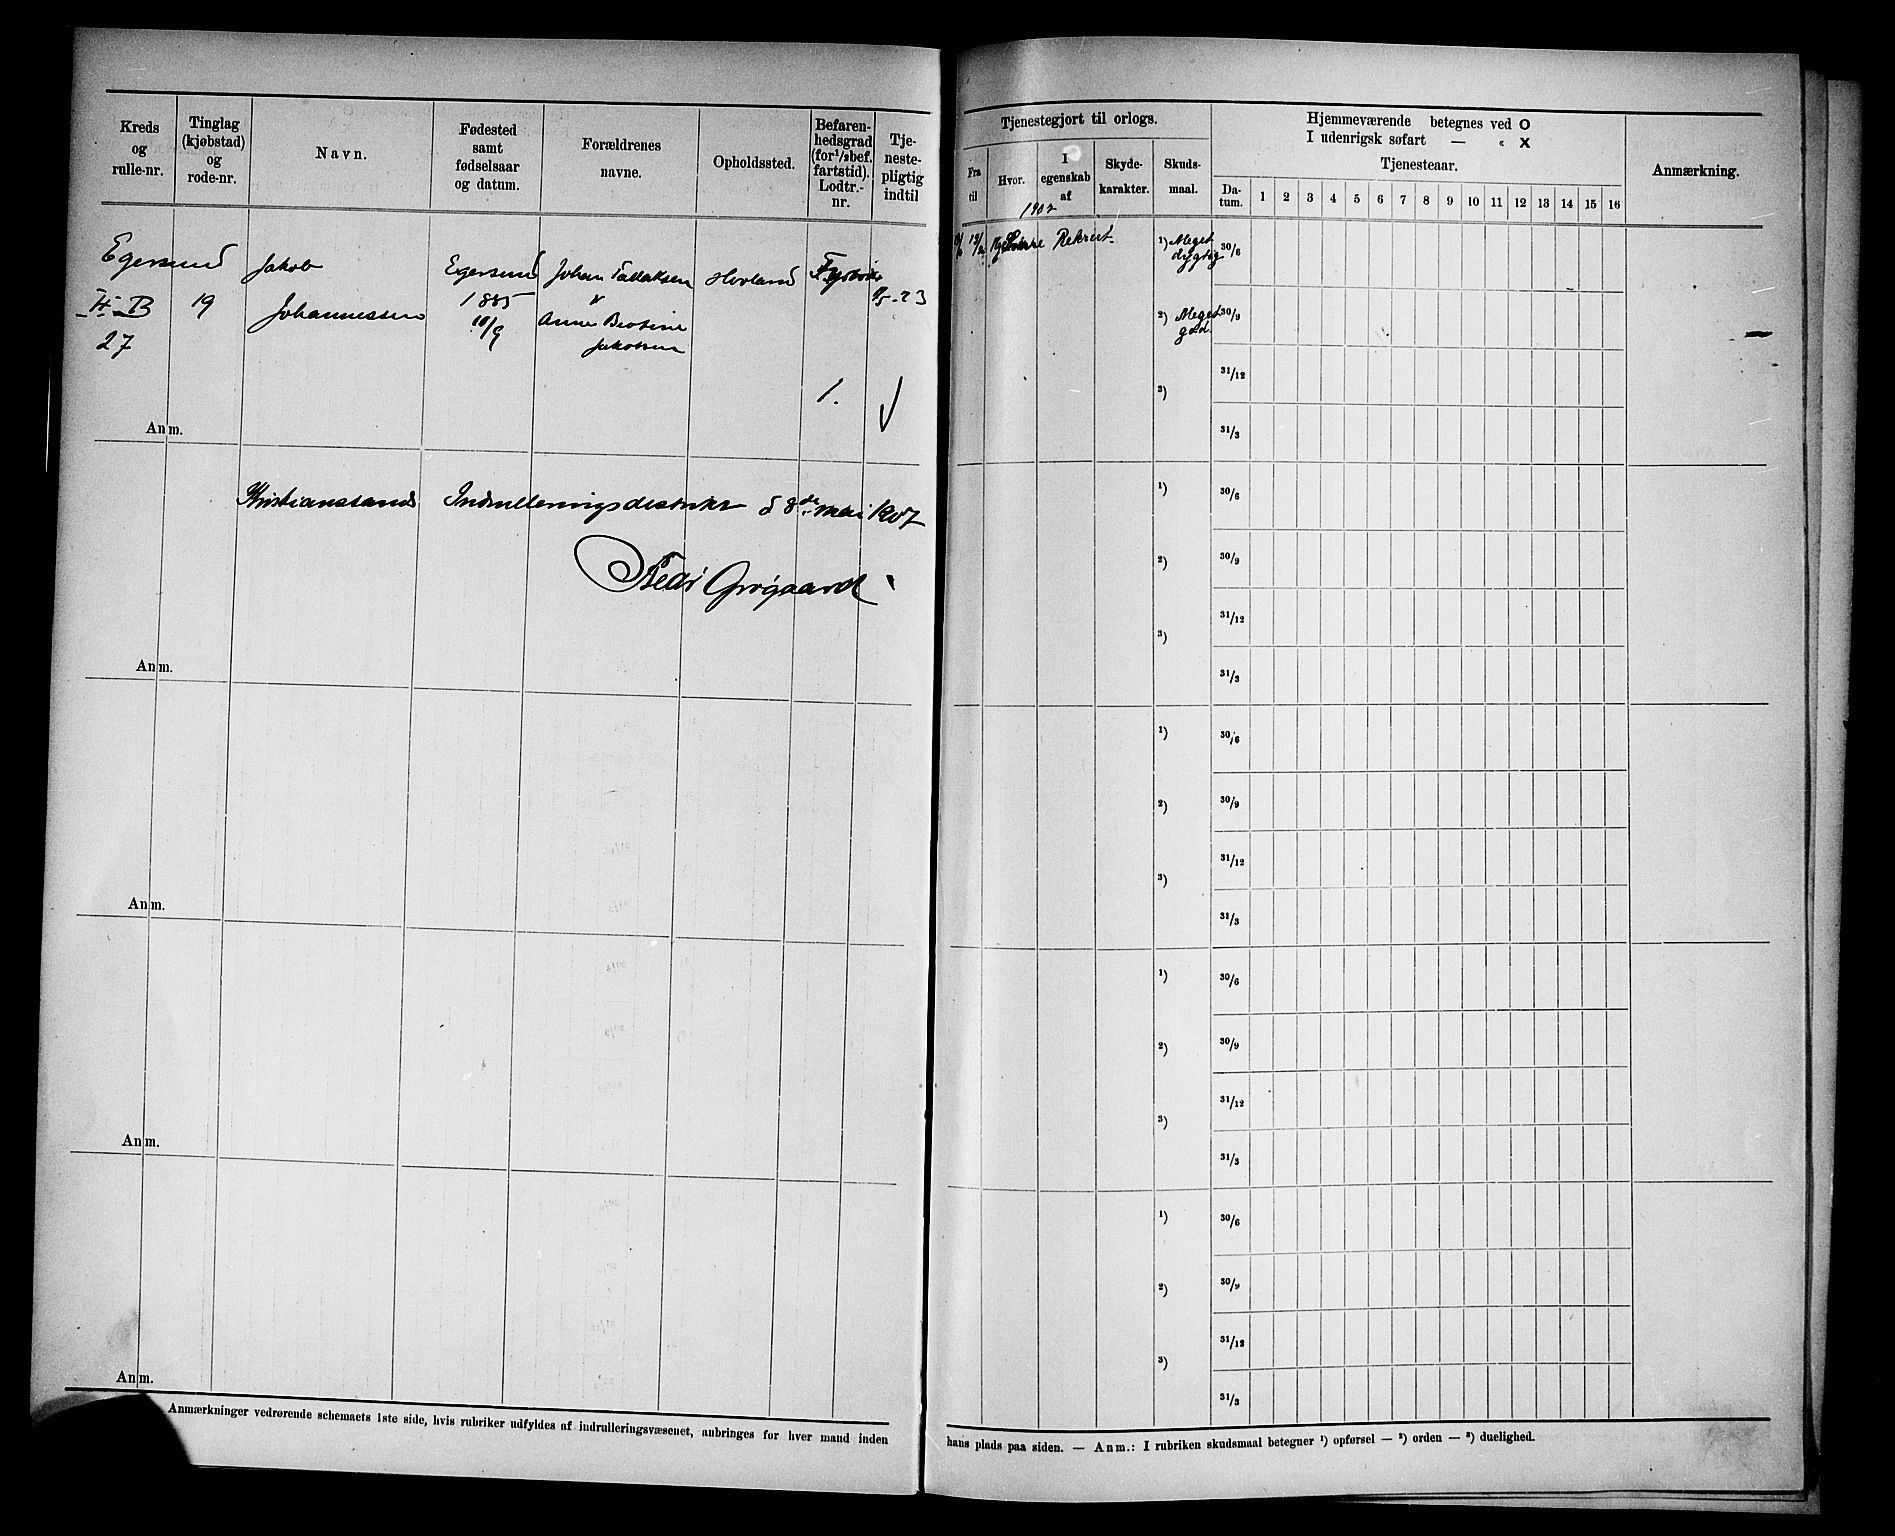 Kreds og rulle-nr.
Tinglag (kjøbstad) og rode-nr.
Navn.
Fødested samt fødselsaar og datum.
Forældrenes navne.
Opholdssted.
Befarenhedsgrad (for 1/2 bef. fartstid). Lodtr.-nr.
Tjenestepligtig indtil
Egersund
II B 19
27
Jakob
Johannessen
Egersund
1885
10/9
Johan Tallaksen
&
Anne Bertine
Jakobsen
Hovland
23
1.
Anm.
Kristianssands Indrulleringsdistrikt d 8de mai 1907
Fredr Grøgaard
Anm.
Anm.
Anm.
Anm.
Anmærkninger vedrørende schemaets 1ste side, hvis rubriker udfyldes af indrulleringsvæsenet, anbringes for hver mand inden
Tjenestegjort til orlogs.
Fra til
Hvor.
I egenskab af
Skydekarakter.
Skudsmaal.
Hjemmeværende betegnes ved O
I udenrigsk søfart — « X
Tjenesteaar.
Datum. 1 2 3 4 5 6 7 8 9 10 11 12 13 14 15 16
Anmærkning.
1907
Rekrut
1) Meget dygtig 30/6
2) Meget god. 30/9
31/12
3)
31/3
1) 30/6
2) 30/9
31/12
3)
31/3
1) 30/6
2) 30/9
31/12
3)
31/3
1) 30/6
2) 30/9
31/12
3)
31/3
1) 30/6
2) 30/9
31/12
3)
31/3
hans plads paa siden. — Anm.: I rubriken skudsmaal betegner 1) opførsel — 2) orden — 3) duelighed.